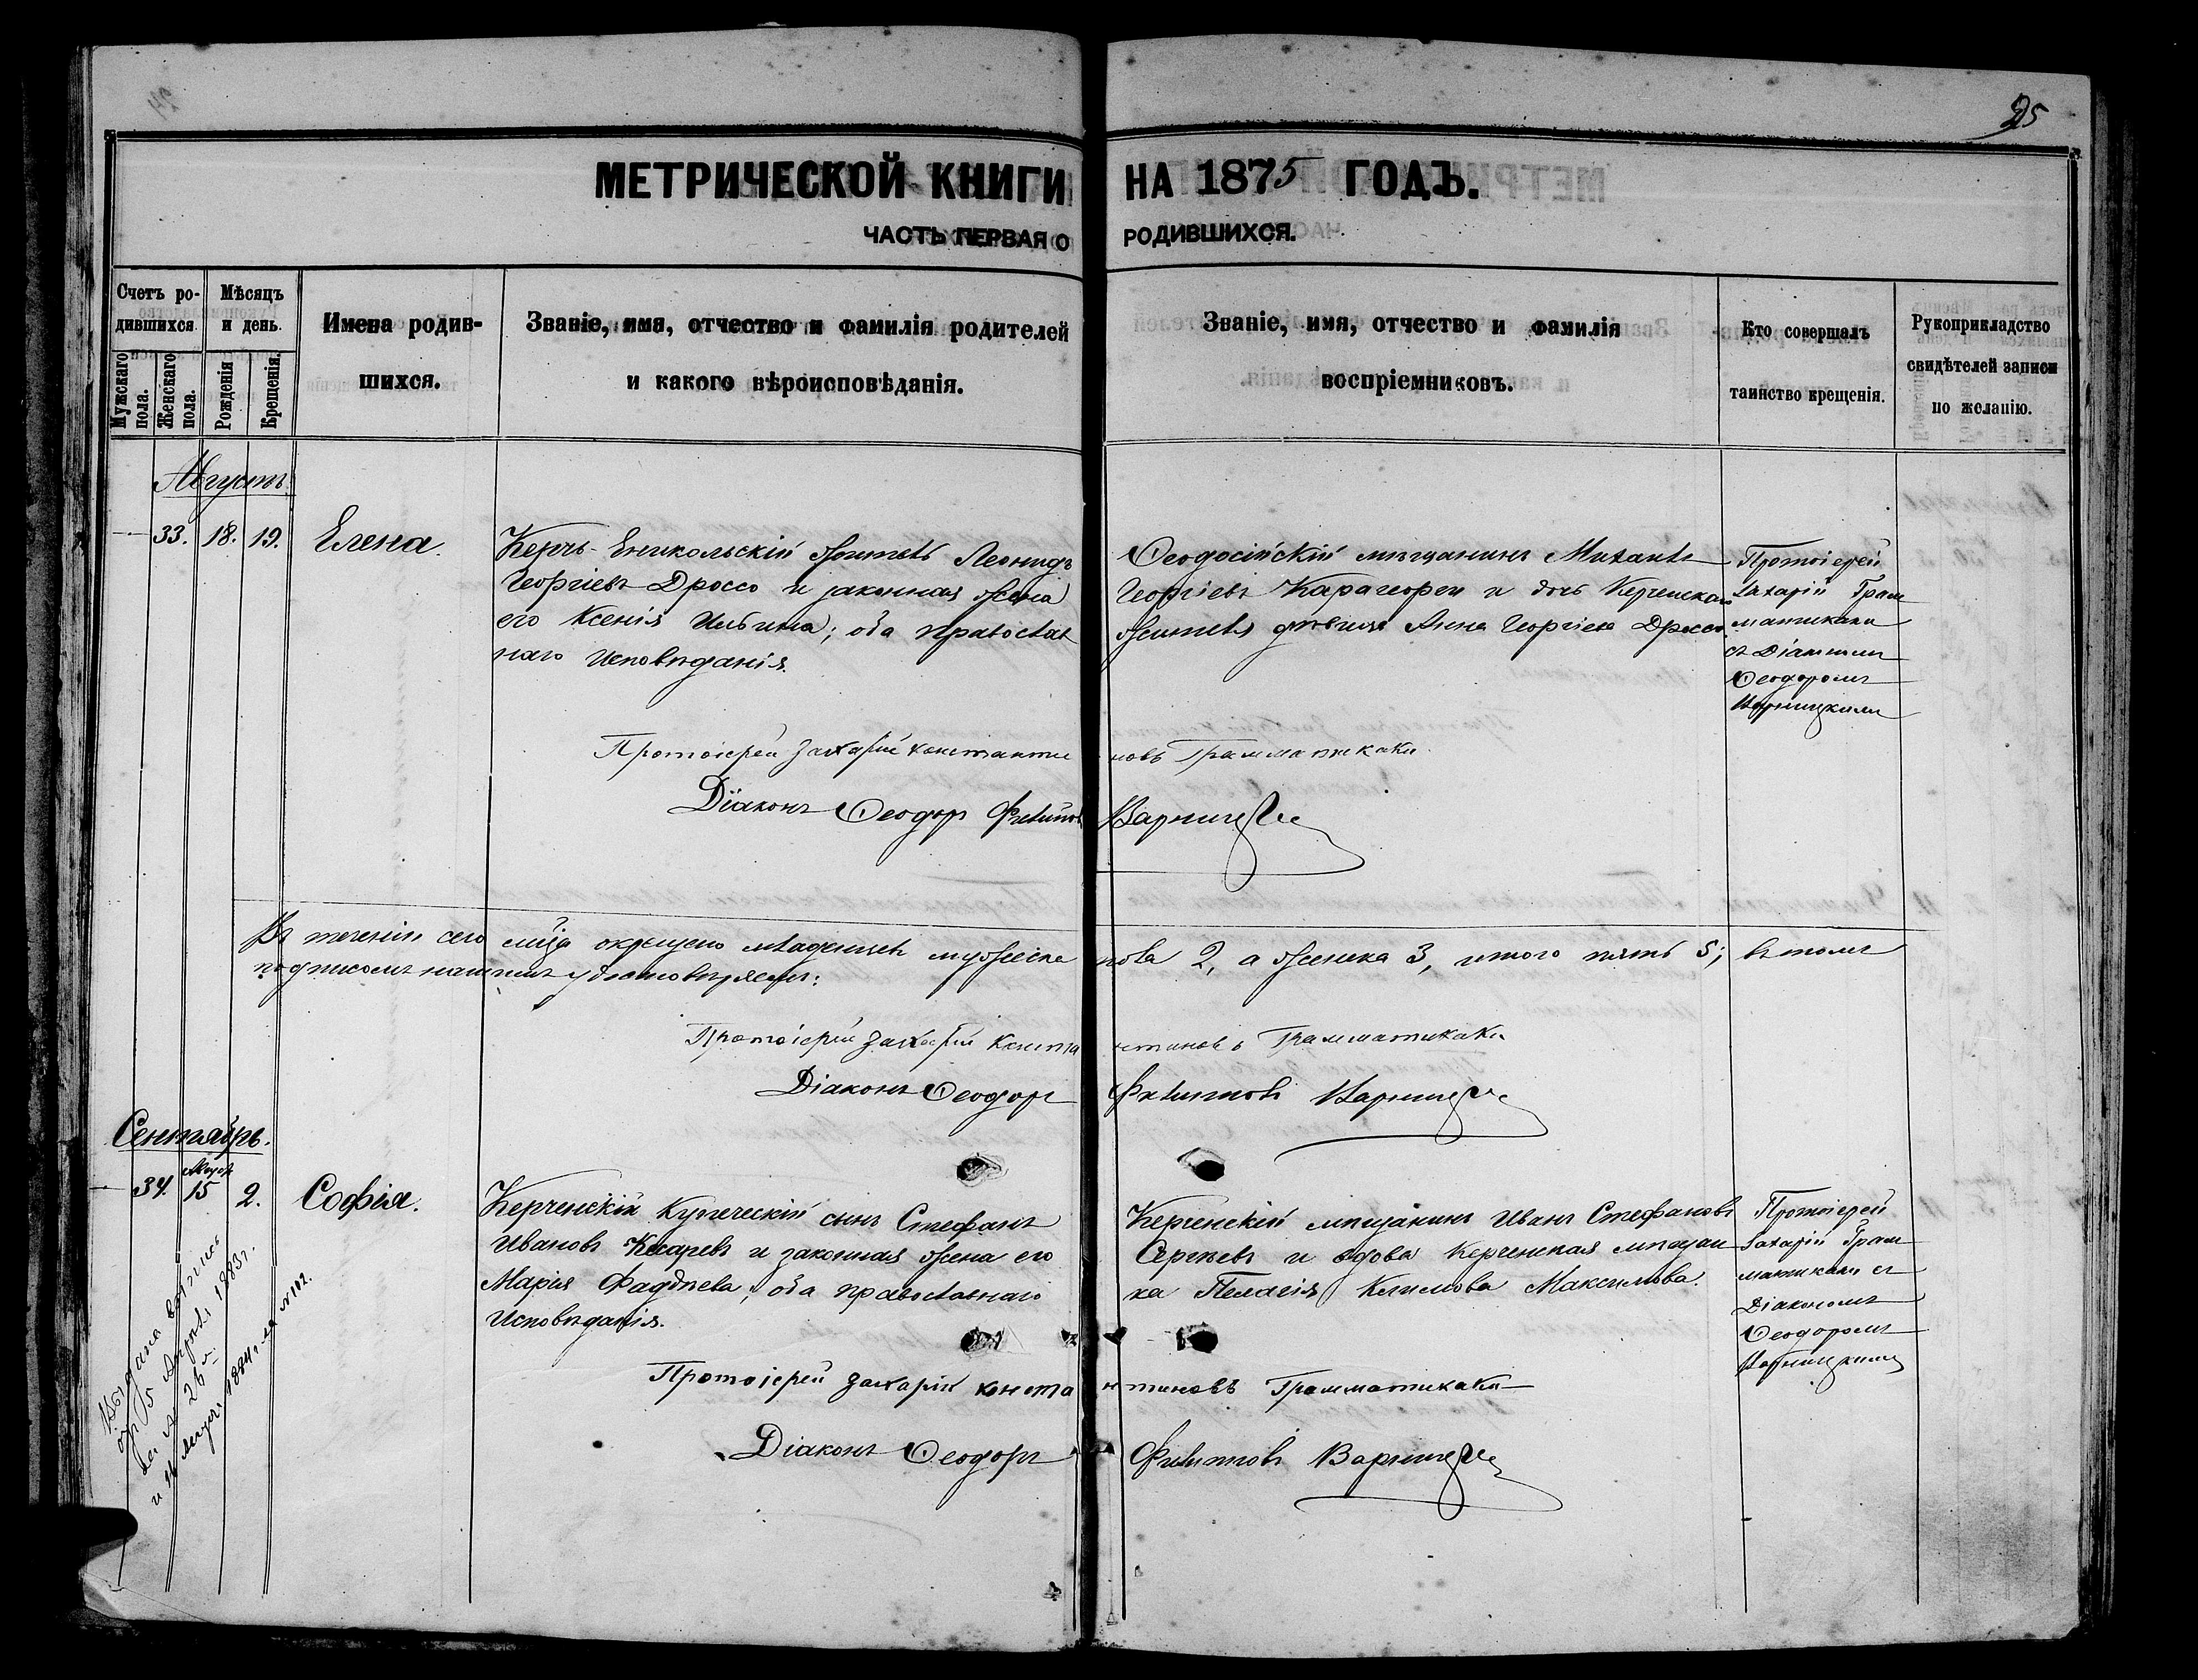 25
МЕТРИЧЕСКОЙ КНИГИ НА 1875 ГОДЪ.
ЧАСТЬ ПЕРВАЯ О РОДИВШИХСЯ.
Счетъ ро-
дившихся.
Мужскаго пола.
Женскаго пола.
Мѣсяцъ
и день.
Рожденія
Крещенія.
Имена родив-
шихся.
Званіе, имя, отчество и фамилія родителей
и какого вѣроисповѣданія.
Званіе, имя, отчество и фамилія
воспріемниковъ.
Кто совершалъ
таинство крещенія.
Рукоприкладство
свидѣтелей записи
по желанію.
Августъ.
33. 18. 19. Елена.
Керчь-Еникольскій житель Леонидъ
Георгіевъ Дроссо и законная жена
его Ксенія Ильина; оба православ
наго исповѣданія.
Ѳеодосійскій мѣщанинъ Михаилъ
Георгіевъ Карагеорги и дочь Керченскаго
жителя дѣвица Анна Георгіева Дроссо.
Протоіерей
Захарій Грам
матикаки
съ Діакономъ
Ѳеодоромъ
Варницкимъ
Протоіерей Захарій Константиновъ Грамматикаки.
Діаконъ Ѳеодоръ Филиповъ Варницкій
Въ теченіи сего мѣсяца окрещено младенцевъ мужеска пола 2, а женска 3, итого пять 5; въ томъ
подписомъ нашимъ удостовѣряемъ:
Протоіерей Захарій Константиновъ Грамматикаки
Діаконъ Ѳеодоръ Филипповъ Варницкій
Сентябрь.
34. Август. 15 2. Софія.
Керченскій Купеческій сынъ Стефанъ
Ивановъ и законная жена его
Марія Фаддѣева; оба православнаго
исповѣданія.
Керченскій мѣщанинъ Иванъ Стефановъ
Сергѣевъ и вдова Керченская мѣщан
ка Пелагія Климова Максимова.
Протоіерей
Захарій Грам
матикаки съ
Діакономъ
Ѳеодоромъ
Варницкимъ
Протоіерей Захарій Константиновъ Грамматикаки
Діаконъ Ѳеодоръ Филипповъ Варницкій
Выдана выпись
15 1883 г.
за № 26
и 1884 г. за № 102.